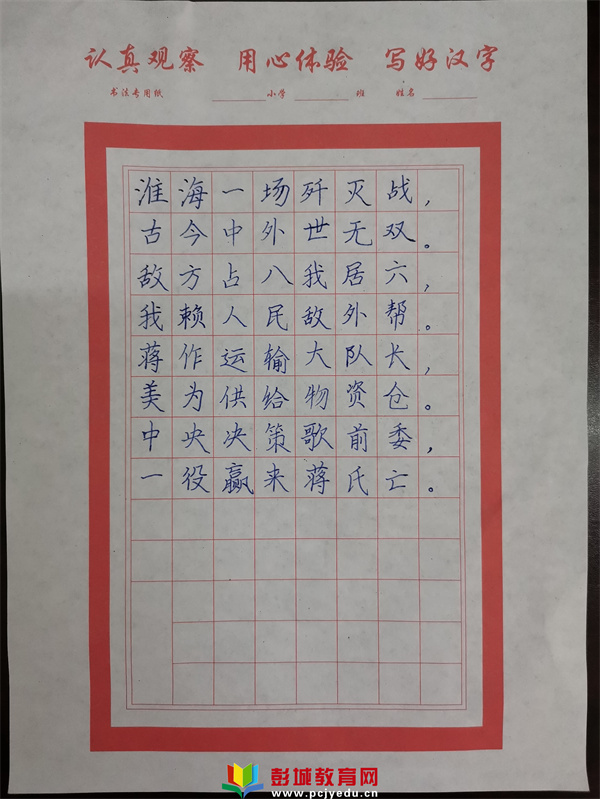 认真观察 用心体验 写好汉字
书法专用纸 小学 班 姓名
淮海一场歼灭战，
古今中外世无双。
敌方占八我居六，
我赖人民敌外帮。
蒋作运输大队长，
美为供给物资仓。
中央决策歌前委，
一役赢来蒋氏亡。
彭城教育网
www.pcjyedu.cn